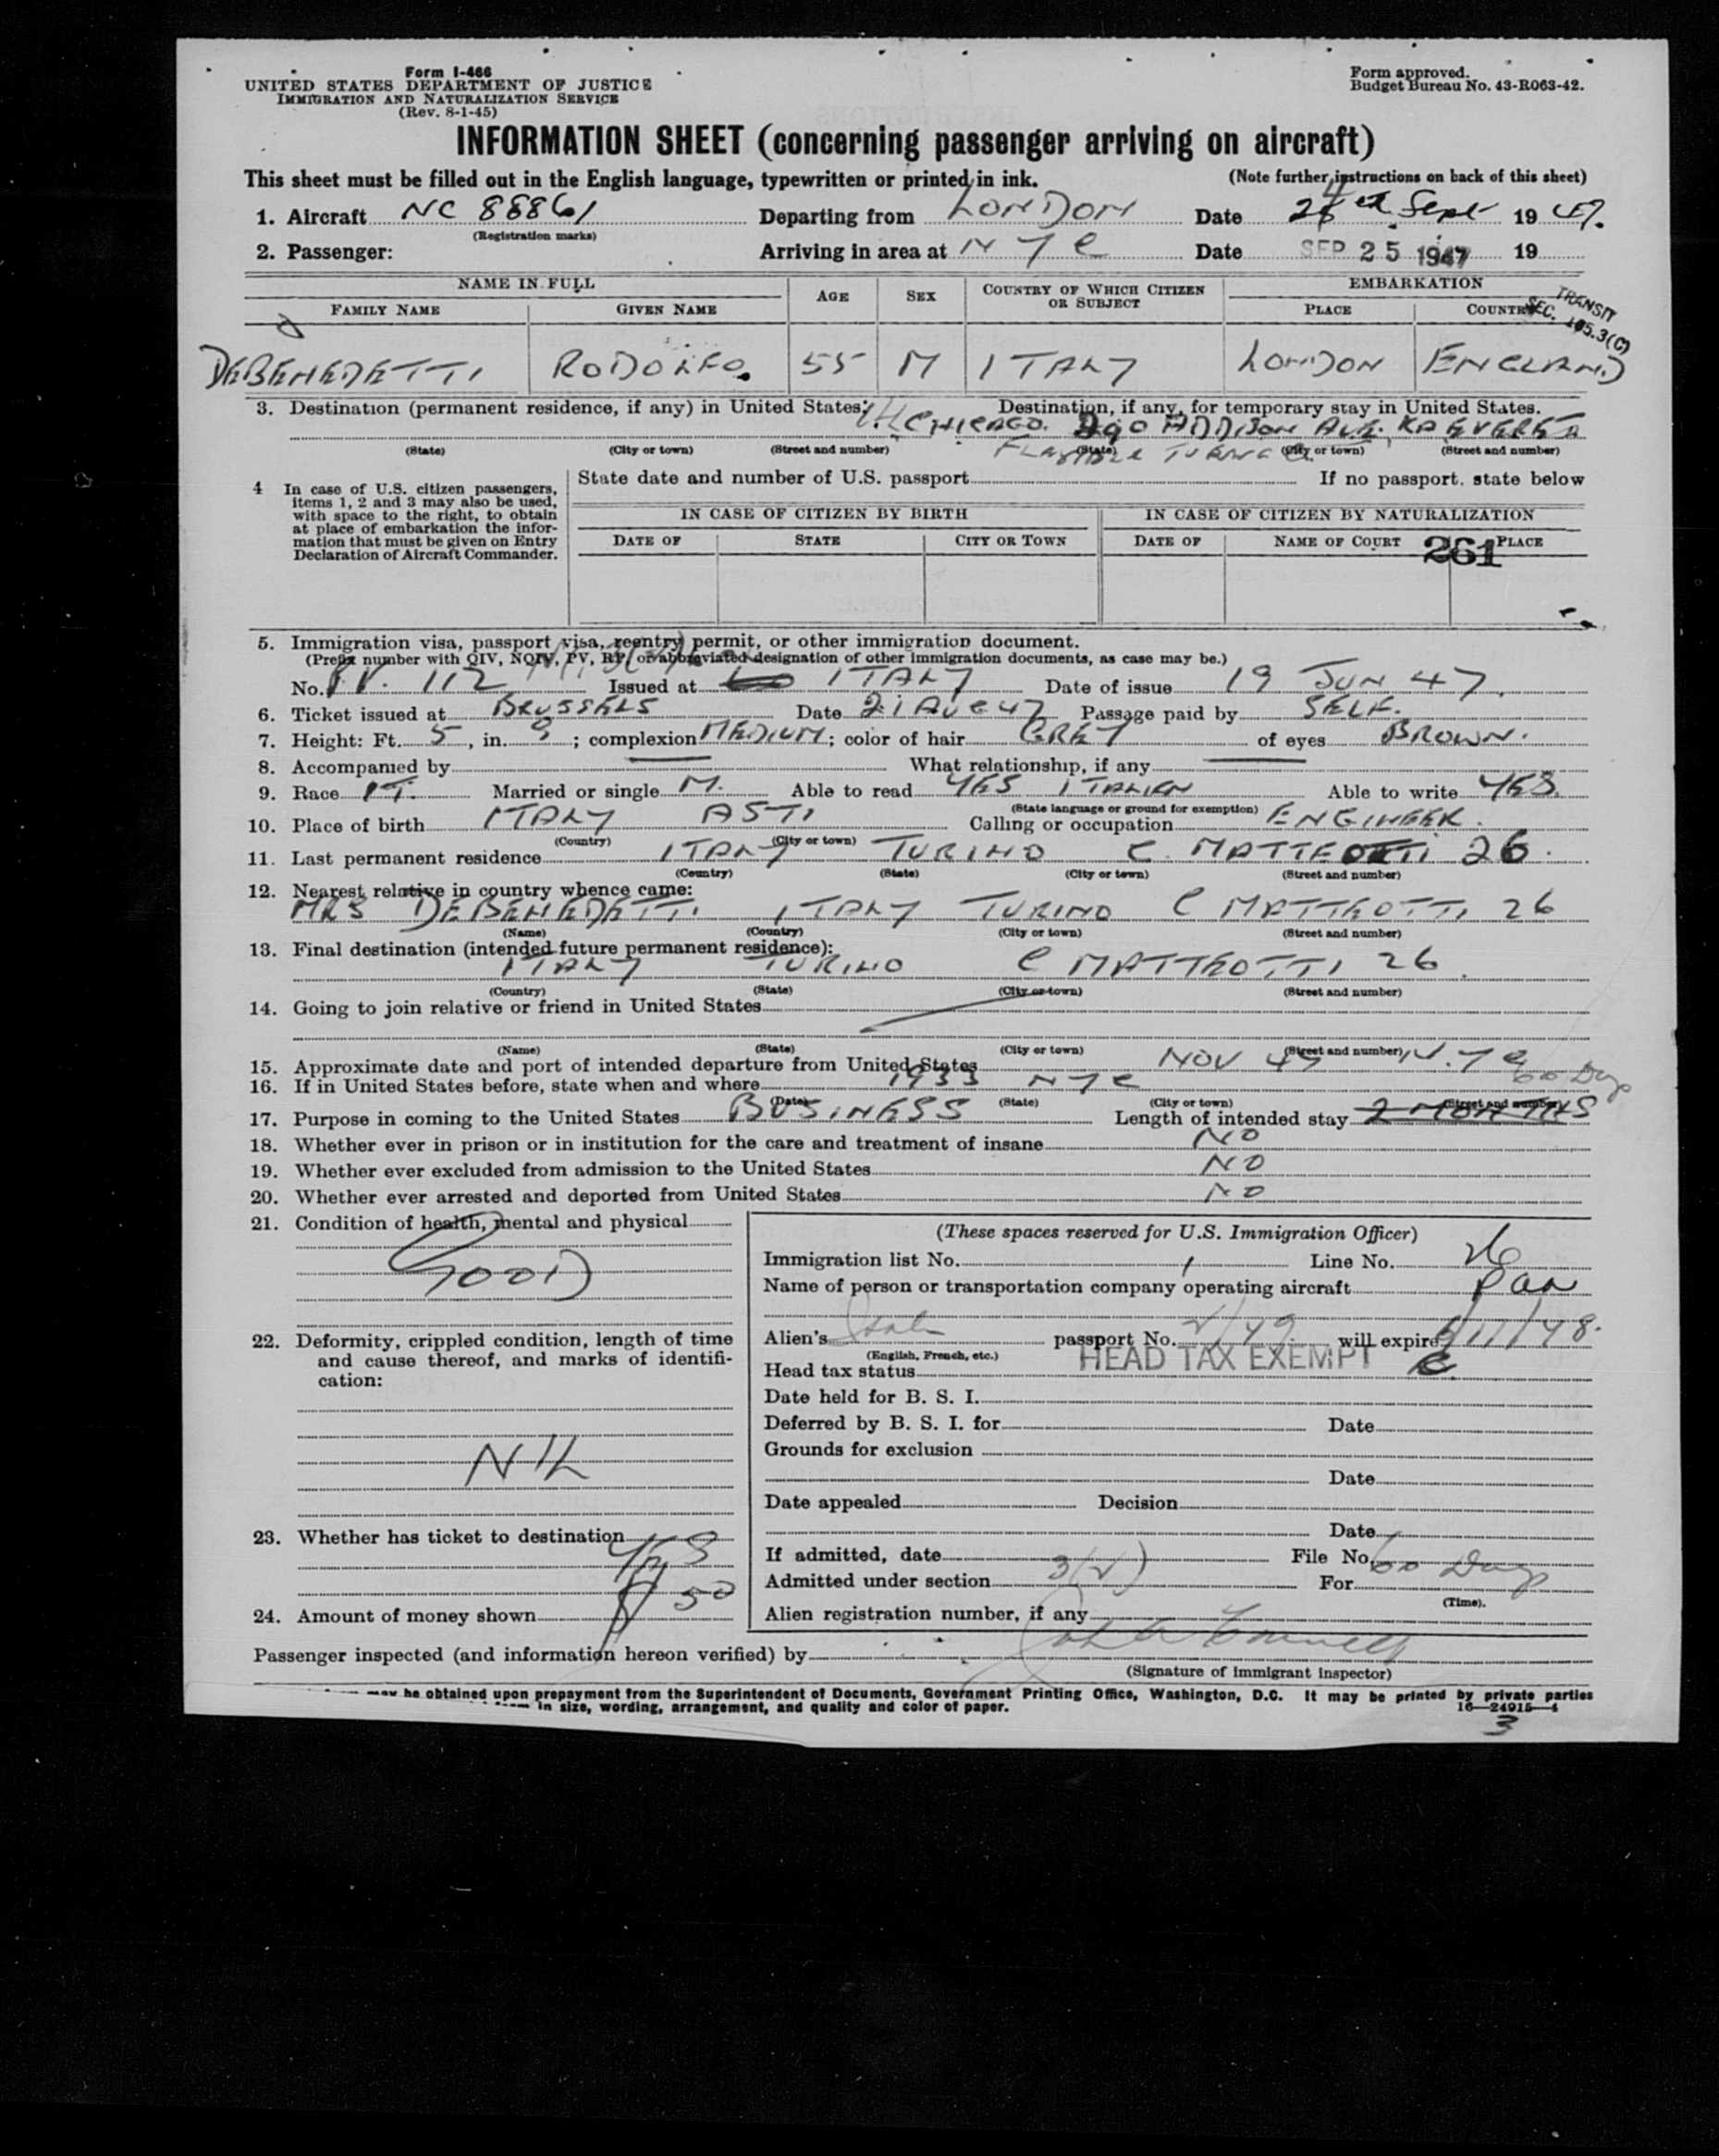 Form I-466
UNITED STATES DEPARTMENT OF JUSTICE
IMMIGRATION AND NATURALIZATION SERVICE
(Rev. 8-1-45)
Form approved.
Budget Bureau No. 43-R063-42.
INFORMATION SHEET (concerning passenger arriving on aircraft)
This sheet must be filled out in the English language, typewritten or printed in ink. (Note further instructions on back of this sheet)
1. Aircraft NC 88861 Departing from LONDON Date 24th Sept 1947.
(Registration marks)
2. Passenger: Arriving in area at NYC Date SEP 25 1947 19
NAME IN FULL AGE SEX COUNTRY OF WHICH CITIZEN OR SUBJECT EMBARKATION
FAMILY NAME GIVEN NAME PLACE COUNTRY
TRANSIT
SEC. 105.3(C)
DEBENEDETTI RODOLFO. 55 M ITALY LONDON ENGLAND
3. Destination (permanent residence, if any) in United States: Destination, if any, for temporary stay in United States.
CHICAGO. ADDISON AVE.
(State) (City or town) (Street and number) (State) (City or town) (Street and number)
4 In case of U.S. citizen passengers, items 1, 2 and 3 may also be used, with space to the right, to obtain at place of embarkation the information that must be given on Entry Declaration of Aircraft Commander.
State date and number of U.S. passport If no passport, state below
IN CASE OF CITIZEN BY BIRTH IN CASE OF CITIZEN BY NATURALIZATION
DATE OF STATE CITY OR TOWN DATE OF NAME OF COURT PLACE
261
5. Immigration visa, passport visa, reentry permit, or other immigration document.
(Prefix number with QIV, NQIV, PV, RP, or abbreviated designation of other immigration documents, as case may be.)
No. PV. 112 Issued at ITALY Date of issue 19 JUN 47.
6. Ticket issued at BRUSSELS Date 21 AUG 47 Passage paid by SELF.
7. Height: Ft. 5, in. 9; complexion MEDIUM; color of hair GREY of eyes BROWN.
8. Accompanied by What relationship, if any
9. Race IT. Married or single M. Able to read YES ITALIAN Able to write YES.
(State language or ground for exemption)
10. Place of birth ITALY ASTI Calling or occupation ENGINEER.
(Country) (City or town)
11. Last permanent residence ITALY TURINO C. MATTEOTTI 26.
(Country) (State) (City or town) (Street and number)
12. Nearest relative in country whence came:
MRS DEBENEDETTI ITALY TURINO C MATTEOTTI 26
(Name) (Country) (City or town) (Street and number)
13. Final destination (intended future permanent residence):
ITALY TURINO C MATTEOTTI 26.
(Country) (State) (City or town) (Street and number)
14. Going to join relative or friend in United States
(Name) (State) (City or town) (Street and number)
15. Approximate date and port of intended departure from United States NOV 47 N.Y.C
60 Days
16. If in United States before, state when and where 1933 NYC
(Date) (State) (City or town) (Street and number)
17. Purpose in coming to the United States BUSINESS Length of intended stay 2 MONTHS
18. Whether ever in prison or in institution for the care and treatment of insane NO
19. Whether ever excluded from admission to the United States NO
20. Whether ever arrested and deported from United States NO
21. Condition of health, mental and physical
GOOD
22. Deformity, crippled condition, length of time and cause thereof, and marks of identification:
NIL
23. Whether has ticket to destination YES
24. Amount of money shown $ 50
(These spaces reserved for U.S. Immigration Officer)
Immigration list No. 1 Line No. 26
Name of person or transportation company operating aircraft PAA
Alien's passport No. will expire
(English, French, etc.)
Head tax status HEAD TAX EXEMPT
Date held for B. S. I.
Deferred by B. S. I. for Date
Grounds for exclusion
Date
Date appealed Decision
Date
If admitted, date File No.
Admitted under section 3(2) For 60 Days
(Time).
Alien registration number, if any
Passenger inspected (and information hereon verified) by
(Signature of Immigrant Inspector)
may be obtained upon prepayment from the Superintendent of Documents, Government Printing Office, Washington, D.C. It may be printed by private parties
in size, wording, arrangement, and quality and color of paper. 16—24915-1
3